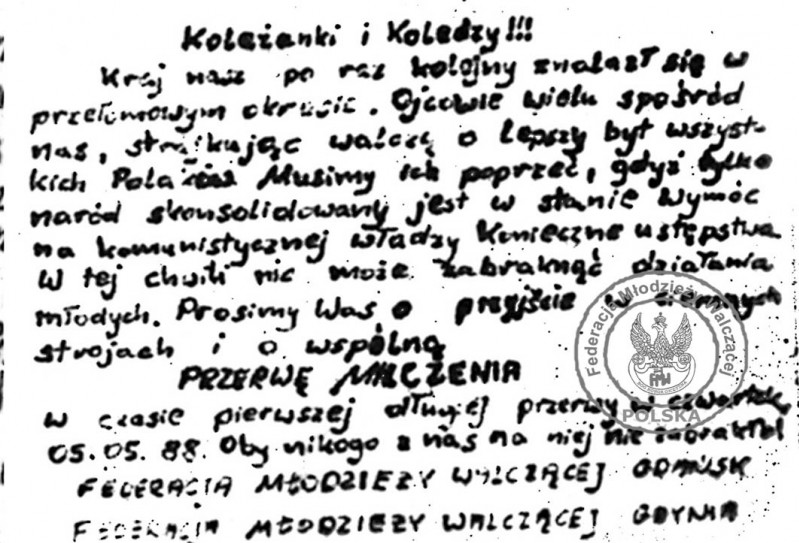 Koleżanki i Koledzy!!!
Kraj nasz po raz kolejny znalazł się w
przełomowym okresie. Ojcowie wielu spośród
nas, strajkując walczą o lepszy byt wszyst-
kich Polaków Musimy ich poprzeć, gdyż tylko
naród skonsolidowany jest w stanie wymóc
na komunistycznej władzy konieczne ustępstwa
W tej chwili nie może zabraknąć działania
młodych. Prosimy Was o przyjście w ciemnych
strojach i o wspólną
PRZERWĘ MILCZENIA
w czasie pierwszej długiej przerwy w czwartek,
05.05.88. Oby nikogo z nas na niej nie zabrakło!
FEDERACJA MŁODZIEŻY WALCZĄCEJ GDAŃSK
FEDERACJA MŁODZIEŻY WALCZĄCEJ GDYNIA
Federacja Młodzieży Walczącej
FMW
POLSKA